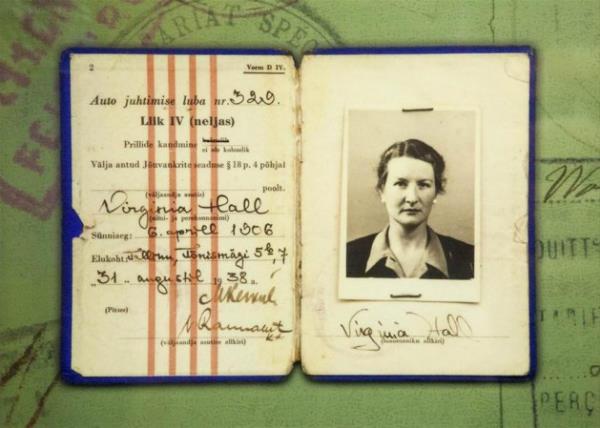 ARIAT SPEC
2
Vorm D IV.
Auto juhtimise luba nr. 329.
Liik IV (neljas)
Prillide kandmine
ei ole kohuslik
Välja antud Jõuvankrite seaduse § 18 p. 4 põhjal
poolt.
(väljaandja asutis)
Virginia Hall
(nimi- ja perekonnanimi)
Sünniaeg: 6. aprill 1906
Elukoht: Tallinn, Tõnismägi 5a, 7
„31" augustil 1938 a.
(Pitser)
(väljaandja asutise allkiri)
Virginia Hall
(omaniku allkiri)